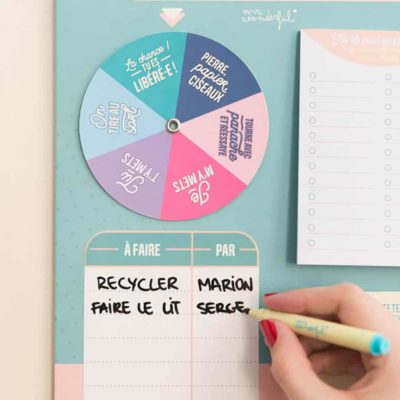 mr.
wonderful*
La chance !
TU ES
LIBÉRÉ·E !
PIERRE,
papier
CISEAUX
TOURNE AVEC
panache
ET RÉESSAYE
Je
M'Y METS
Tu
T'Y METS
On
TIRE AU
sort
À FAIRE PAR
RECYCLER MARION
FAIRE LE LIT SERGE